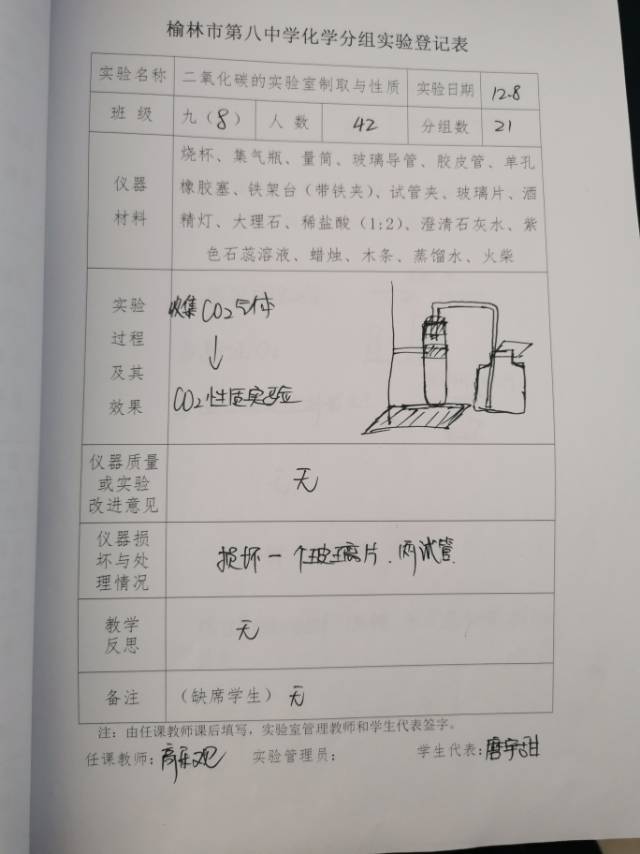 榆林市第八中学化学分组实验登记表
实验名称 二氧化碳的实验室制取与性质 实验日期 12.8
班 级 九（8） 人 数 42 分组数 21
仪器
材料
烧杯、集气瓶、量筒、玻璃导管、胶皮管、单孔
橡胶塞、铁架台（带铁夹）、试管夹、玻璃片、酒
精灯、大理石、稀盐酸（1:2）、澄清石灰水、紫
色石蕊溶液、蜡烛、木条、蒸馏水、火柴
实验
过程
及其
效果
收集CO2气体
↓
CO2性质实验
仪器质量
或实验
改进意见
无
仪器损
坏与处
理情况
损坏一个玻璃片、两试管
教学
反思
无
备注 （缺席学生）无
注：由任课教师课后填写，实验室管理教师和学生代表签字。
任课教师： 实验管理员： 学生代表：唐宇甜